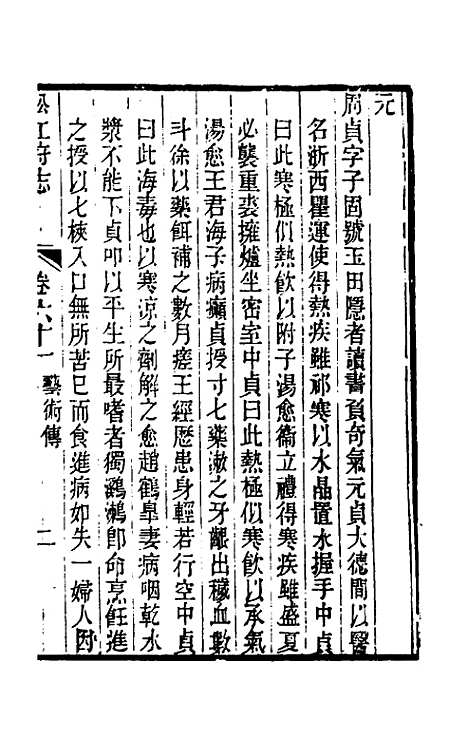 元
周貞字子固號玉田隱者讀書負奇氣元貞大德間以醫
名浙西瞿運使得熱疾雖祁寒以水晶置水握手中貞
曰此寒極似熱飲以附子湯愈衞立禮得寒疾雖盛夏
必襲重裘擁爐坐密室中貞曰此熱極似寒飲以承氣
湯愈王君海子病癩貞授寸七藥漱之牙齦出穢血數
斗徐以藥餌補之數月瘥王經歷患身輕若行空中貞
曰此海毒也以寒涼之劑解之愈趙鶴臯妻病咽乾水
漿不能下貞叩以平生所最嗜者獨鸂鶒卽命烹飪進
之授以七梜入口無所苦巳而食進病如失一婦人因
松江府志 卷六十一 藝術傳 二